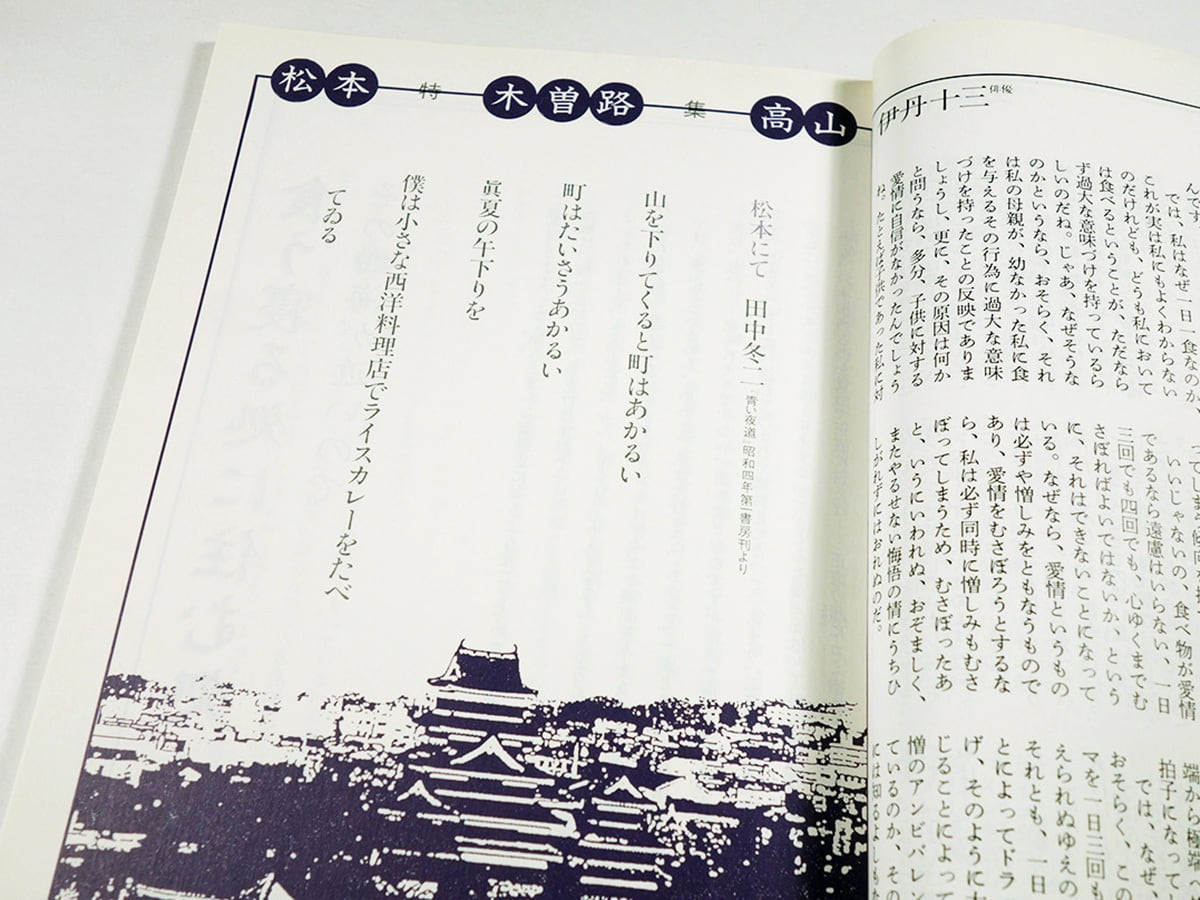 伊丹十三 俳優
では、私はなぜ一日一食なのか
これが実は私にもよくわからない
のだけれども、どうも私において
は食べるということが、ただなら
ず過大な意味づけを持っているら
しいのだね。じゃあ、なぜそうな
のかというなら、おそらく、それ
は私の母親が、幼なかった私に食
を与えるその行為に過大な意味
づけを持ったことの反映でありま
しょうし、更に、その原因は何か
と問うなら、多分、子供に対する
愛情に自信がなかったんでしょう
ね。たとえば子供であった私に対
ってしまう傾向を
いいじゃないの、食べ物が愛情
であるなら遠慮はいらない、一日
三回でも四回でも、心ゆくまでむ
さぼればよいではないか、という
に、それはできないことになって
いる。なぜなら、愛情というもの
は必ずや憎しみをともなうもので
あり、愛情をむさぼろうとするな
ら、私は必ず同時に憎しみもむさ
ぼってしまうため、むさぼったあ
と、いうにいわれぬ、おぞましく、
またやるせない悔悟の情にうちひ
しがれずにはおれぬのだ。
端から極端
拍子になって
では、なぜ、
おそらく、この
マを一日三回も
えられぬゆえの
それとも、一日
とによってドラ
げ、そのように
じることによって
憎のアンビバレン
ているのか、その
には知るよしも
松本 特 木曽路 集 高山
松本にて 田中冬二 「青い夜道」昭和四年第一書房刊より
山を下りてくると町はあかるい
町はたいさうあかるい
眞夏の午下りを
僕は小さな西洋料理店でライスカレーをたべ
てゐる